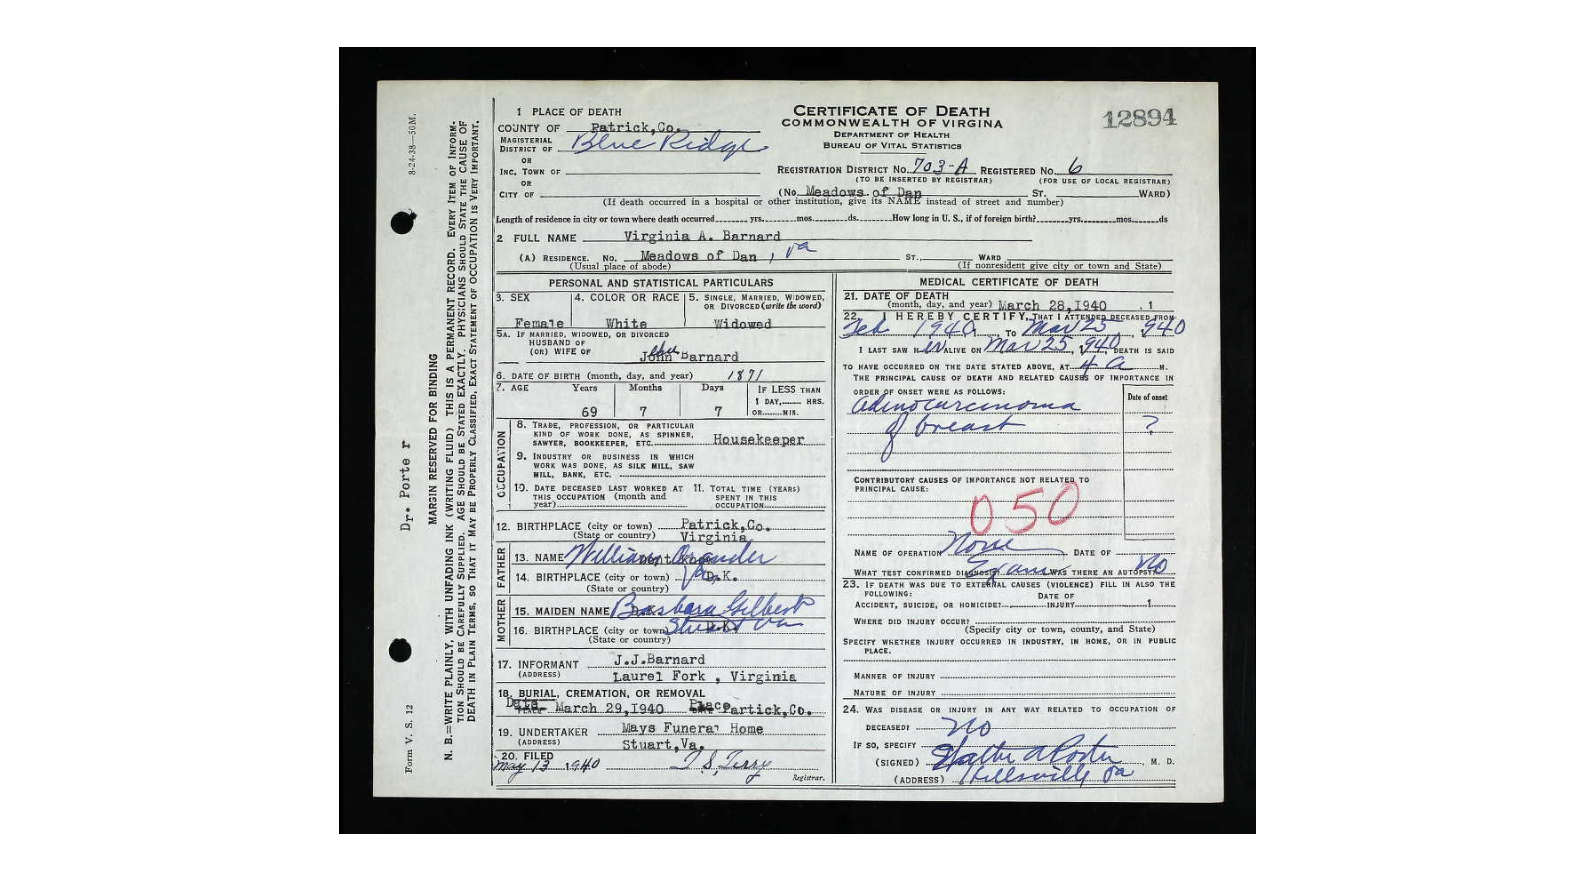 8-24-38—50M.
Dr. Porter
Form V. S. 12
MARGIN RESERVED FOR BINDING
N. B.=WRITE PLAINLY, WITH UNFADING INK (WRITING FLUID) THIS IS A PERMANENT RECORD. EVERY ITEM OF INFORM-
TION SHOULD BE CAREFULLY SUPPLIED. AGE SHOULD BE STATED EXACTLY. PHYSICIANS SHOULD STATE THE CAUSE OF
DEATH IN PLAIN TERMS, SO THAT IT MAY BE PROPERLY CLASSIFIED. EXACT STATEMENT OF OCCUPATION IS VERY IMPORTANT.
1 PLACE OF DEATH
COUNTY OF Patrick,Co.
MAGISTERIAL
DISTRICT OF Blue Ridge
OR
INC. TOWN OF
OR
CITY OF
CERTIFICATE OF DEATH
COMMONWEALTH OF VIRGINIA
DEPARTMENT OF HEALTH
BUREAU OF VITAL STATISTICS
12894
REGISTRATION DISTRICT NO. 703-A REGISTERED NO. 6
(TO BE INSERTED BY REGISTRAR) (FOR USE OF LOCAL REGISTRAR)
(No. Meadows of Dan ST. WARD)
(If death occurred in a hospital or other institution, give its NAME instead of street and number)
Length of residence in city or town where death occurred yrs. mos. ds. How long in U. S., if of foreign birth? yrs. mos. ds
2 FULL NAME Virginia A. Barnard
(A) RESIDENCE. No. Meadows of Dan, Va ST., WARD
(Usual place of abode) (If nonresident give city or town and State)
PERSONAL AND STATISTICAL PARTICULARS
3. SEX 4. COLOR OR RACE 5. SINGLE, MARRIED, WIDOWED,
OR DIVORCED (write the word)
Female White Widowed
5A. IF MARRIED, WIDOWED, OR DIVORCED
HUSBAND OF
(OR) WIFE OF John Barnard
6. DATE OF BIRTH (month, day, and year) 1871
7. AGE Years Months Days IF LESS THAN
1 DAY, HRS.
69 7 7 OR MIN.
OCCUPATION
8. TRADE, PROFESSION, OR PARTICULAR
KIND OF WORK DONE, AS SPINNER,
SAWYER, BOOKKEEPER, ETC. Housekeeper
9. INDUSTRY OR BUSINESS IN WHICH
WORK WAS DONE, AS SILK MILL, SAW
MILL, BANK, ETC.
10. DATE DECEASED LAST WORKED AT 11. TOTAL TIME (YEARS)
THIS OCCUPATION (month and SPENT IN THIS
year) OCCUPATION
12. BIRTHPLACE (city or town) Patrick,Co.
(State or country) Virginia
FATHER
13. NAME William
14. BIRTHPLACE (city or town) D.K.
(State or country)
MOTHER
15. MAIDEN NAME Barbara Gilbert
16. BIRTHPLACE (city or town) Stuart Va
(State or country)
17. INFORMANT J.J.Barnard
(ADDRESS) Laurel Fork , Virginia
18. BURIAL, CREMATION, OR REMOVAL
Date March 29,1940 Place Partick,Co.
19. UNDERTAKER Mays Funeral Home
(ADDRESS) Stuart,Va.
20. FILED
May 13 1940 T S, Terry
Registrar.
MEDICAL CERTIFICATE OF DEATH
21. DATE OF DEATH
(month, day, and year) March 28,1940 , 1
22. I HEREBY CERTIFY, THAT I ATTENDED DECEASED FROM
Feb 1940, TO Mar 25, 1940
I LAST SAW HER ALIVE ON Mar 25, 1940, DEATH IS SAID
TO HAVE OCCURRED ON THE DATE STATED ABOVE, AT 4 A M.
THE PRINCIPAL CAUSE OF DEATH AND RELATED CAUSES OF IMPORTANCE IN
ORDER OF ONSET WERE AS FOLLOWS: Date of onset
Adinocarcinoma
of breast ?
CONTRIBUTORY CAUSES OF IMPORTANCE NOT RELATED TO
PRINCIPAL CAUSE:
050
NAME OF OPERATION None DATE OF
WHAT TEST CONFIRMED DIAGNOSIS Exam WAS THERE AN AUTOPSY No
23. IF DEATH WAS DUE TO EXTERNAL CAUSES (VIOLENCE) FILL IN ALSO THE
FOLLOWING: DATE OF
ACCIDENT, SUICIDE, OR HOMICIDE? INJURY 1
WHERE DID INJURY OCCUR?
(Specify city or town, county, and State)
SPECIFY WHETHER INJURY OCCURRED IN INDUSTRY, IN HOME, OR IN PUBLIC
PLACE.
MANNER OF INJURY
NATURE OF INJURY
24. WAS DISEASE OR INJURY IN ANY WAY RELATED TO OCCUPATION OF
DECEASED? No
IF SO, SPECIFY
(SIGNED) Walter A Porter M. D.
(ADDRESS) Hillsville Va